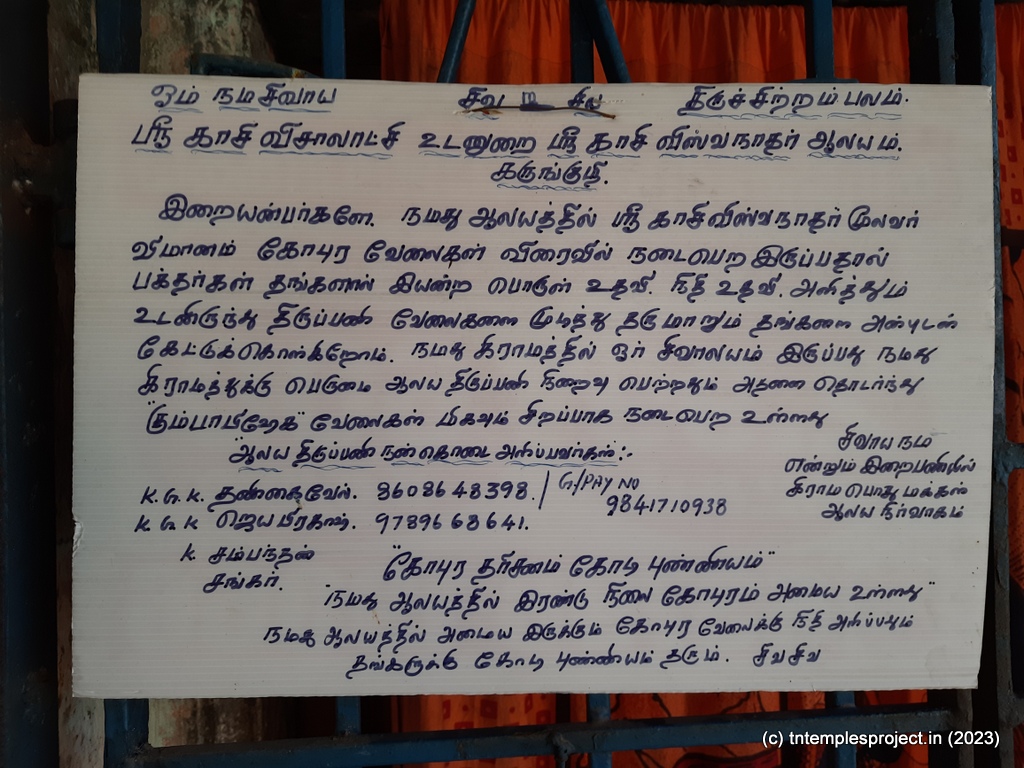 ஓம் நமசிவாய சிவ சிவ திருச்சிற்றம்பலம்.
ஸ்ரீ காசி விசாலாட்சி உடனுறை ஸ்ரீ காசி விஸ்வநாதர் ஆலயம்.
கருங்குழி.
இறையன்பர்களே. நமது ஆலயத்தில் ஸ்ரீ காசிவிஸ்வநாதர் மூலவர்
விமானம் கோபுர வேலைகள் விரைவில் நடைபெற இருப்பதால்
பக்தர்கள் தங்களால் இயன்ற பொருள் உதவி. நிதி உதவி. அளித்தும்
உடனிருந்து திருப்பணி வேலைகளை முடித்து தருமாறும் தங்களை அன்புடன்
கேட்டுக்கொள்கிறோம். நமது கிராமத்தில் ஓர் சிவாலயம் இருப்பது நமது
கிராமத்துக்கு பெருமை ஆலய திருப்பணி நிறைவு பெற்றதும் அதனை தொடர்ந்து
"கும்பாபிஷேக" வேலைகள் மிகவும் சிறப்பாக நடைபெற உள்ளது
"ஆலய திருப்பணி நன்கொடை அளிப்பவர்கள்:-
சிவாய நம
என்றும் இறைபணியில்
கிராம பொது மக்கள்
ஆலய நிர்வாகம்
K.G.K. தணிகைவேல். 8608648398. G/PAY NO
9841710938
K.G.K ஜெயபிரகாஷ். 9789668641.
K. சம்பந்தன்
சங்கர்.
"கோபுர தரிசனம் கோடி புண்ணியம்"
"நமது ஆலயத்தில் இரண்டு நிலை கோபுரம் அமைய உள்ளது"
நமது ஆலயத்தில் அமைய இருக்கும் கோபுர வேலைக்கு நிதி அளிப்பவும்
தங்களுக்கு கோடி புண்ணியம் தரும். சிவசிவ
(c) tntemplesproject.in (2023)